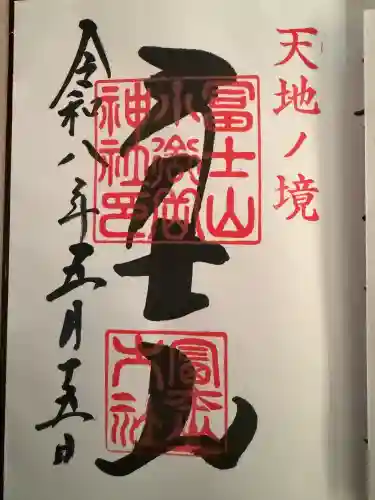 天地ノ境
冨士山
冨士山
小御嶽
神社印
令和八年五月十五日